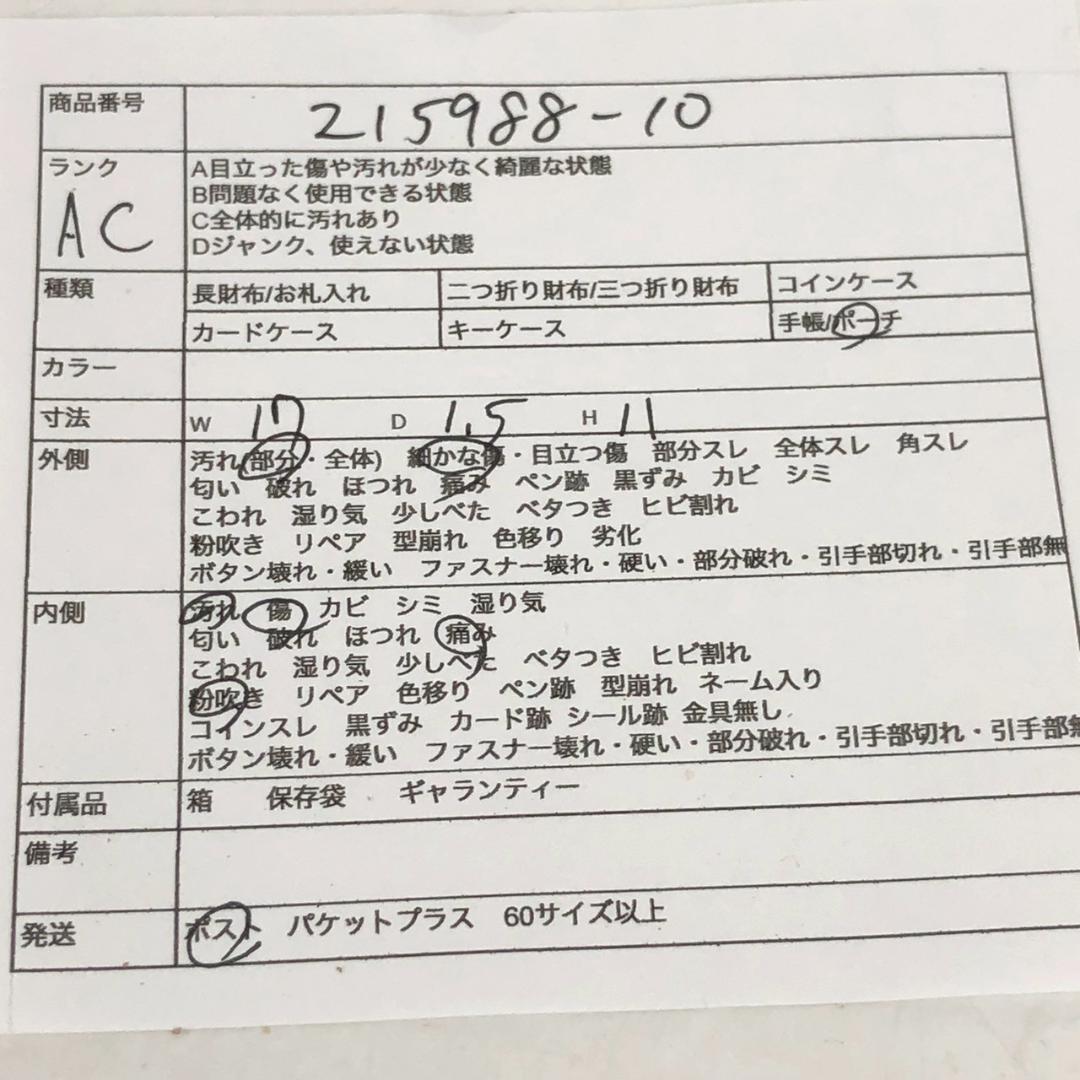 商品番号 215988-10
ランク AC
A目立った傷や汚れが少なく綺麗な状態
B問題なく使用できる状態
C全体的に汚れあり
Dジャンク、使えない状態
種類 長財布/お札入れ 二つ折り財布/三つ折り財布 コインケース
カードケース キーケース 手帳/ポーチ
カラー
寸法 W 17 D 1.5 H 11
外側 汚れ(部分・全体) 細かな傷・目立つ傷 部分スレ 全体スレ 角スレ
匂い 破れ ほつれ 痛み ペン跡 黒ずみ カビ シミ
こわれ 湿り気 少しべた ベタつき ヒビ割れ
粉吹き リペア 型崩れ 色移り 劣化
ボタン壊れ・緩い ファスナー壊れ・硬い・部分破れ・引手部切れ・引手部無
内側 汚れ 傷 カビ シミ 湿り気
匂い 破れ ほつれ 痛み
こわれ 湿り気 少しべた ベタつき ヒビ割れ
粉吹き リペア 色移り ペン跡 型崩れ ネーム入り
コインスレ 黒ずみ カード跡 シール跡 金具無し
ボタン壊れ・緩い ファスナー壊れ・硬い・部分破れ・引手部切れ・引手部無
付属品 箱 保存袋 ギャランティー
備考
発送 ポスト パケットプラス 60サイズ以上